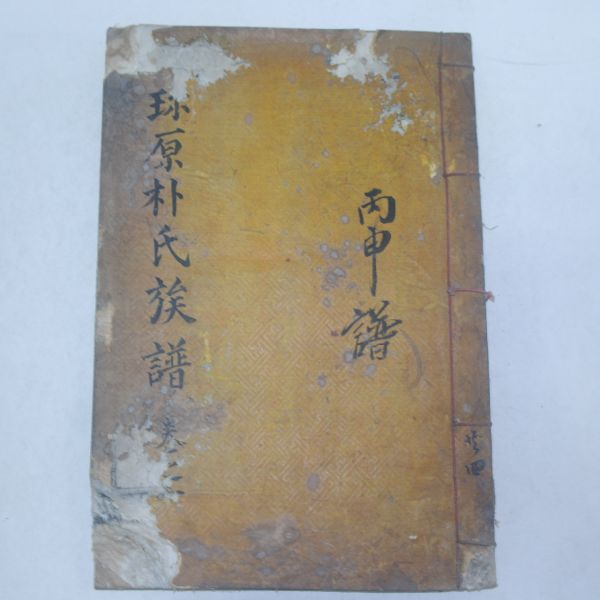 丙申譜
珎原朴氏族譜 卷之二
共四